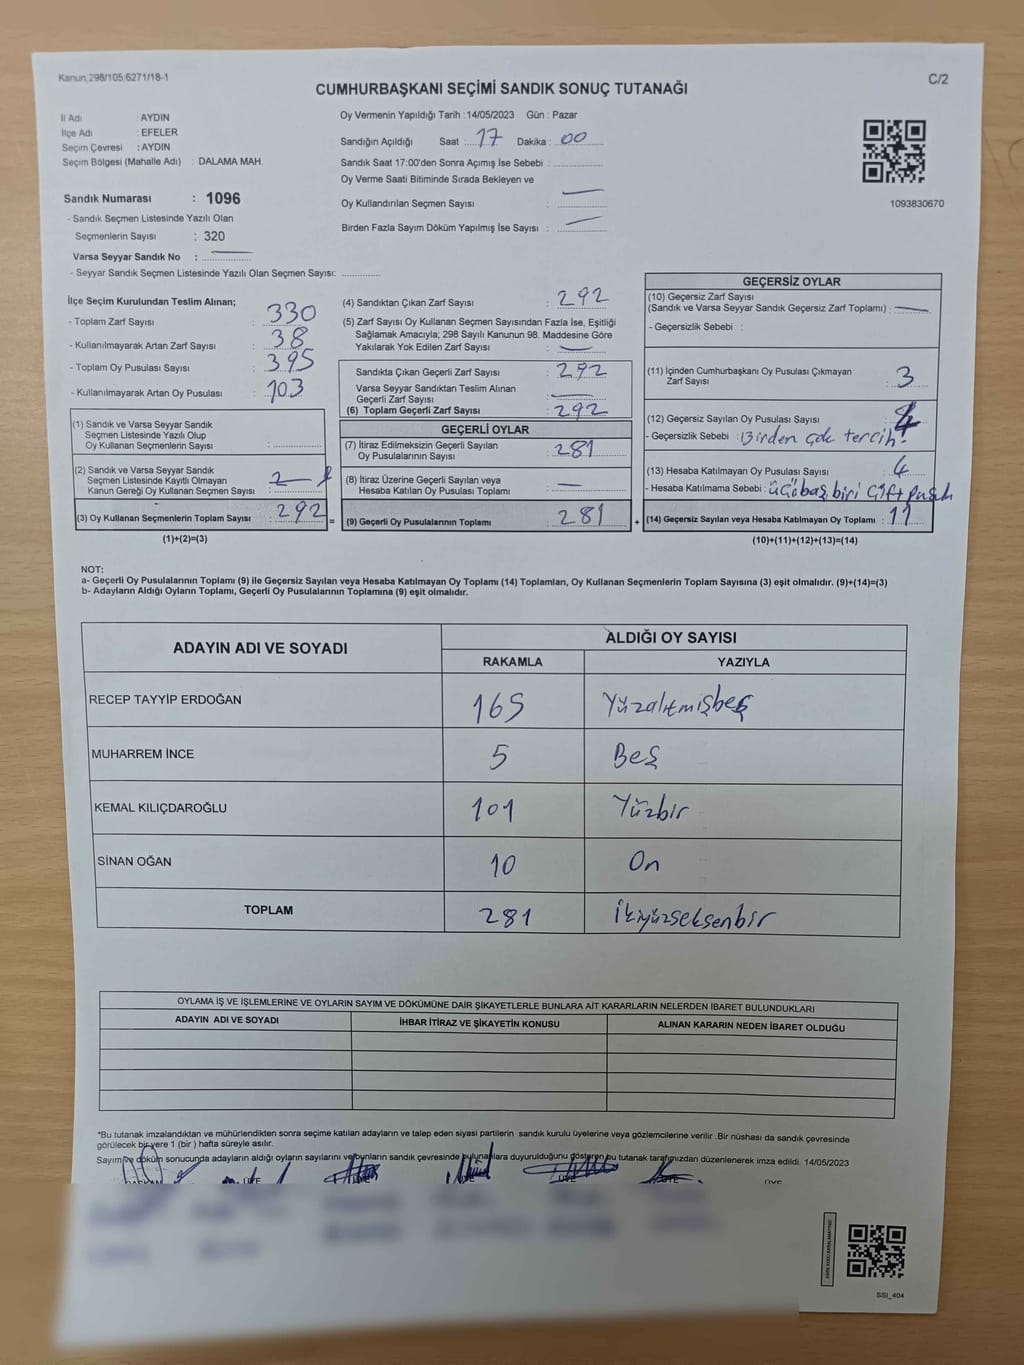 Kanun.298/105;6271/18-1
C/2
CUMHURBAŞKANI SEÇİMİ SANDIK SONUÇ TUTANAĞI
İl Adı : AYDIN
İlçe Adı : EFELER
Seçim Çevresi : AYDIN
Seçim Bölgesi (Mahalle Adı) : DALAMA MAH.
Sandık Numarası : 1096
- Sandık Seçmen Listesinde Yazılı Olan
Seçmenlerin Sayısı : 320
Varsa Seyyar Sandık No :
- Seyyar Sandık Seçmen Listesinde Yazılı Olan Seçmen Sayısı:
Oy Vermenin Yapıldığı Tarih :14/05/2023 Gün : Pazar
Sandığın Açıldığı Saat : 17 Dakika : 00
Sandık Saat 17:00'den Sonra Açımış İse Sebebi :
Oy Verme Saati Bitiminde Sırada Bekleyen ve
Oy Kullandırılan Seçmen Sayısı :
Birden Fazla Sayım Döküm Yapılmış İse Sayısı :
1093830670
İlçe Seçim Kurulundan Teslim Alınan;
- Toplam Zarf Sayısı : 330
- Kullanılmayarak Artan Zarf Sayısı : 38
- Toplam Oy Pusulası Sayısı : 395
- Kullanılmayarak Artan Oy Pusulası : 103
(1) Sandık ve Varsa Seyyar Sandık
Seçmen Listesinde Yazılı Olup
Oy Kullanan Seçmenlerin Sayısı :
(2) Sandık ve Varsa Seyyar Sandık
Seçmen Listesinde Kayıtlı Olmayan
Kanun Gereği Oy Kullanan Seçmen Sayısı : 2
(3) Oy Kullanan Seçmenlerin Toplam Sayısı : 292
(1)+(2)=(3)
(4) Sandıktan Çıkan Zarf Sayısı : 292
(5) Zarf Sayısı Oy Kullanan Seçmen Sayısından Fazla İse, Eşitliği
Sağlamak Amacıyla; 298 Sayılı Kanunun 98. Maddesine Göre
Yakılarak Yok Edilen Zarf Sayısı :
Sandıkta Çıkan Geçerli Zarf Sayısı : 292
Varsa Seyyar Sandıktan Teslim Alınan
Geçerli Zarf Sayısı :
(6) Toplam Geçerli Zarf Sayısı : 292
GEÇERLİ OYLAR
(7) İtiraz Edilmeksizin Geçerli Sayılan
Oy Pusulalarının Sayısı : 281
(8) İtiraz Üzerine Geçerli Sayılan veya
Hesaba Katılan Oy Pusulası Toplamı :
= (9) Geçerli Oy Pusulalarının Toplamı : 281
GEÇERSİZ OYLAR
(10) Geçersiz Zarf Sayısı
(Sandık ve Varsa Seyyar Sandık Geçersiz Zarf Toplamı) :
- Geçersizlik Sebebi :
(11) İçinden Cumhurbaşkanı Oy Pusulası Çıkmayan
Zarf Sayısı : 3
(12) Geçersiz Sayılan Oy Pusulası Sayısı : 4
- Geçersizlik Sebebi : Birden çok tercih
(13) Hesaba Katılmayan Oy Pusulası Sayısı : 4
- Hesaba Katılmama Sebebi : üçü boş biri çift pusula
+ (14) Geçersiz Sayılan veya Hesaba Katılmayan Oy Toplamı : 11
(10)+(11)+(12)+(13)=(14)
NOT:
a- Geçerli Oy Pusulalarının Toplamı (9) ile Geçersiz Sayılan veya Hesaba Katılmayan Oy Toplamı (14) Toplamları, Oy Kullanan Seçmenlerin Toplam Sayısına (3) eşit olmalıdır. (9)+(14)=(3)
b- Adayların Aldığı Oyların Toplamı, Geçerli Oy Pusulalarının Toplamına (9) eşit olmalıdır.
ADAYIN ADI VE SOYADI ALDIĞI OY SAYISI
RAKAMLA YAZIYLA
RECEP TAYYİP ERDOĞAN 165 Yüzaltmışbeş
MUHARREM İNCE 5 Beş
KEMAL KILIÇDAROĞLU 101 Yüzbir
SİNAN OĞAN 10 On
TOPLAM 281 İkiyüzseksenbir
OYLAMA İŞ VE İŞLEMLERİNE VE OYLARIN SAYIM VE DÖKÜMÜNE DAİR ŞİKAYETLERLE BUNLARA AİT KARARLARIN NELERDEN İBARET BULUNDUKLARI
ADAYIN ADI VE SOYADI İHBAR İTİRAZ VE ŞİKAYETİN KONUSU ALINAN KARARIN NEDEN İBARET OLDUĞU
*Bu tutanak imzalandıktan ve mühürlendikten sonra seçime katılan adayların ve talep eden siyasi partilerin sandık kurulu üyelerine veya gözlemcilerine verilir .Bir nüshası da sandık çevresinde
görülecek bir yere 1 (bir ) hafta süreyle asılır.
Sayım ve döküm sonucunda adayların aldığı oyların sayılarını ve bunların sandık çevresinde bulunanlara duyurulduğunu gösteren bu tutanak tarafımızdan düzenlenerek imza edildi. 14/05/2023
BAŞKAN ÜYE ÜYE ÜYE ÜYE ÜYE
SSI_404